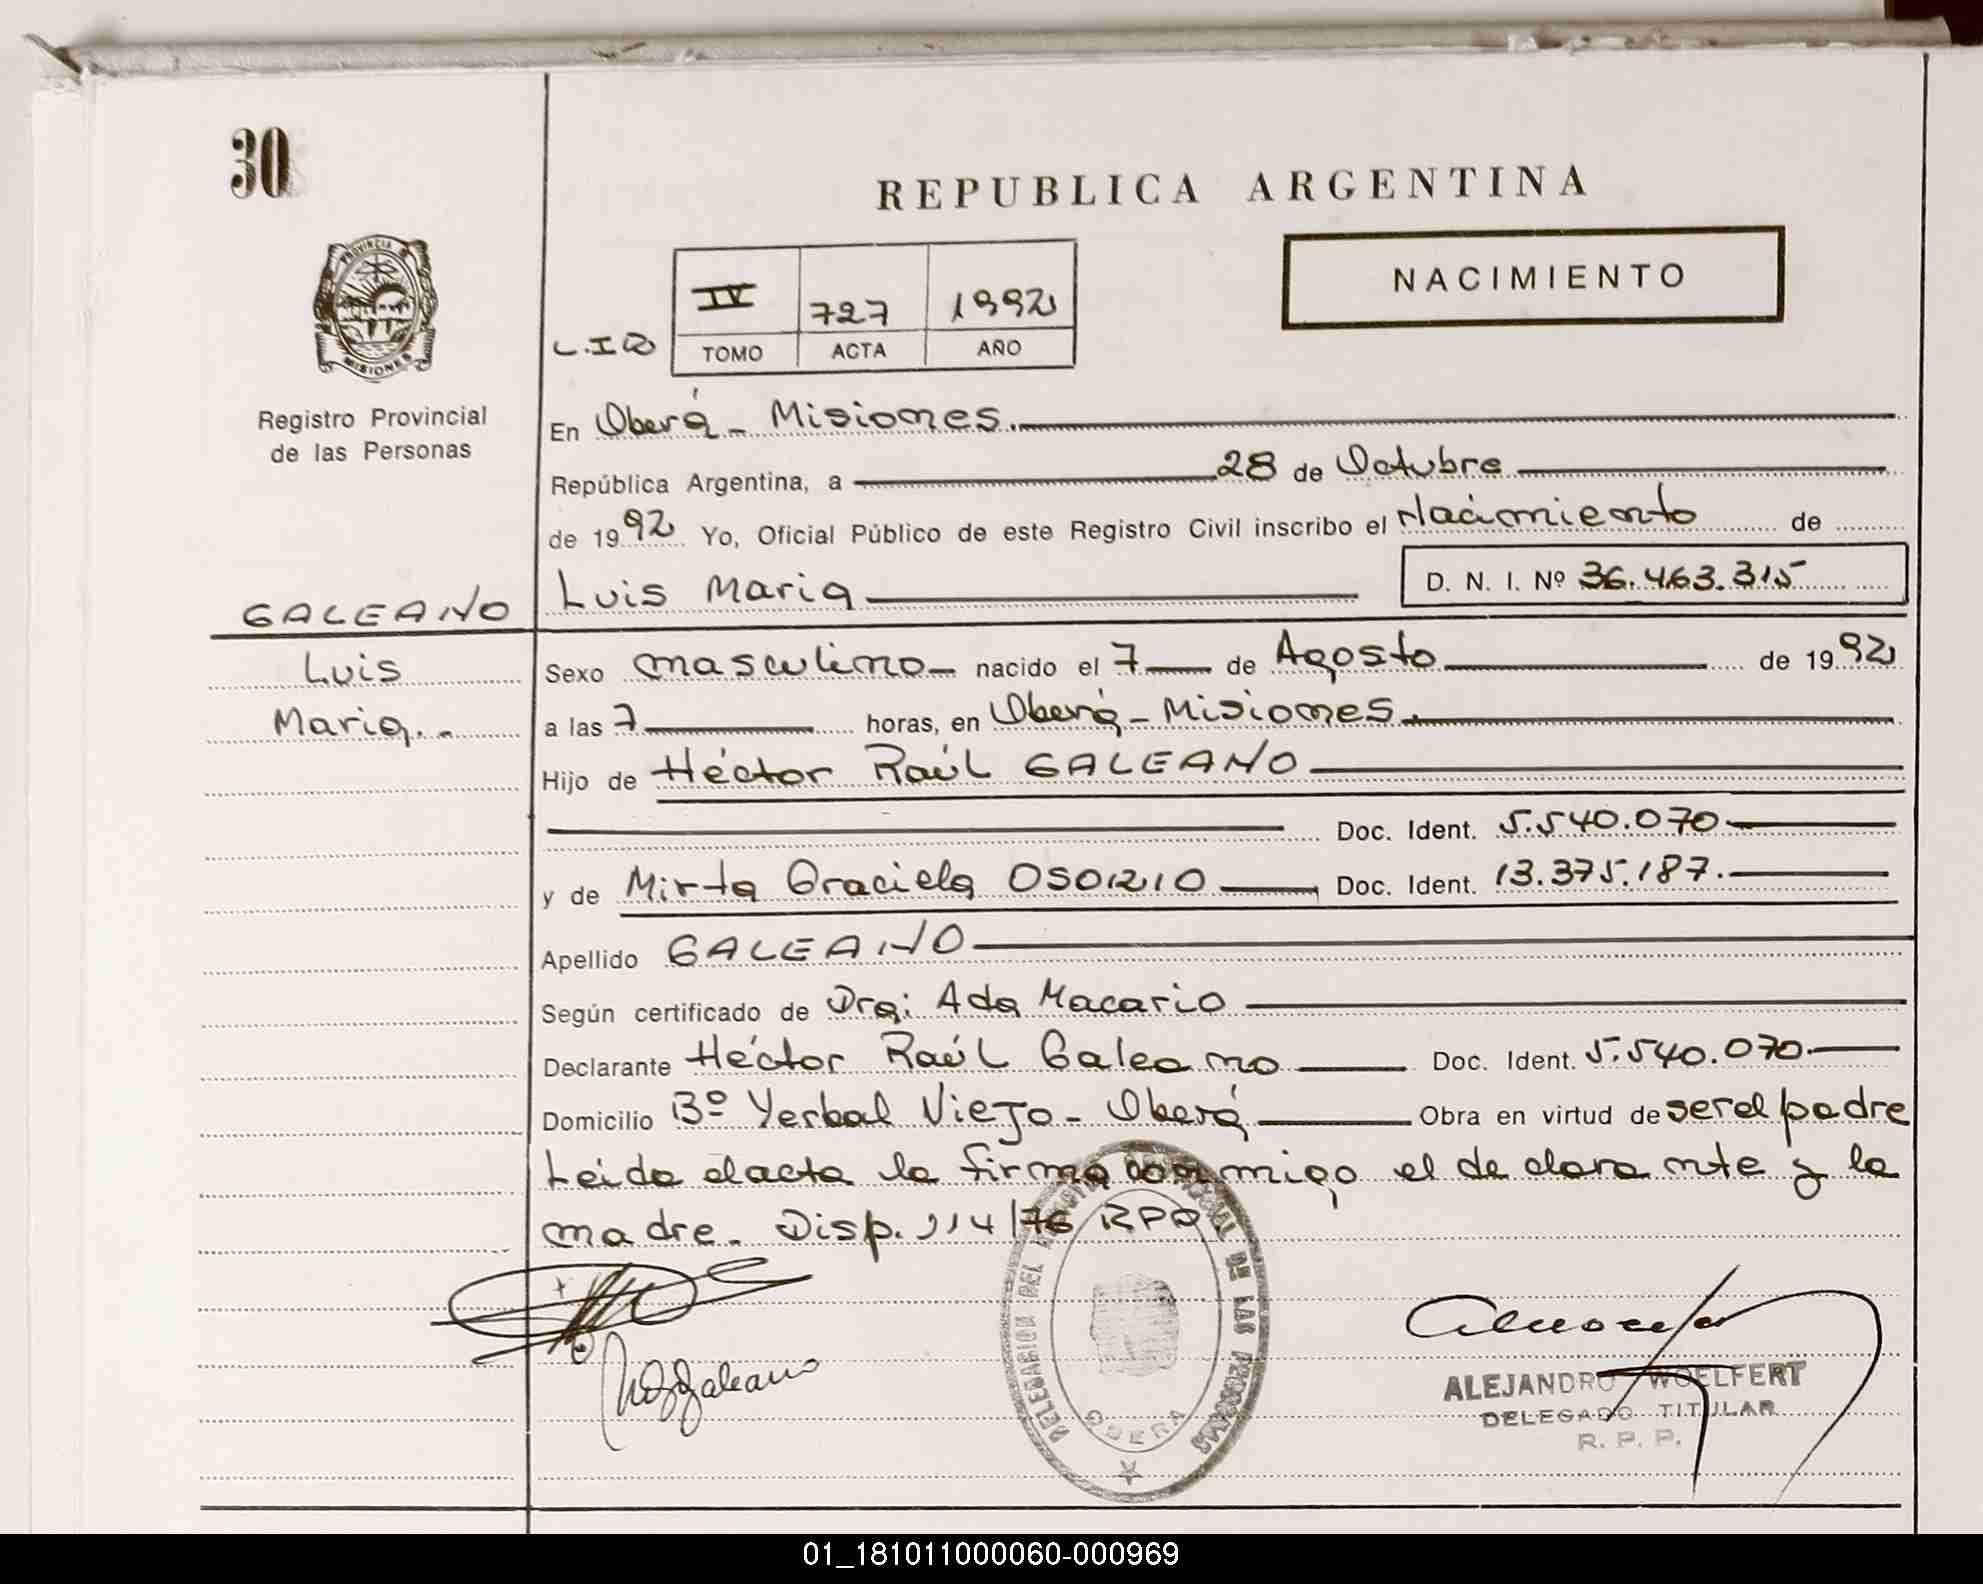 30
REPUBLICA ARGENTINA
PROVINCIA DE MISIONES
NACIMIENTO
IV 727 1992
TOMO ACTA AÑO
Registro Provincial
de las Personas
En Oberá - Misiones.
República Argentina, a 28 de Octubre
de 1992 Yo, Oficial Público de este Registro Civil inscribo el Nacimiento de
GALEANO Luis Maria D. N. I. Nº 36.463.315
Luis Sexo masculino nacido el 7 de Agosto de 1992
Maria.- a las 7 horas, en Oberá - Misiones.
Hijo de Héctor Raúl GALEANO
Doc. Ident. 5.540.070
y de Mirta Graciela OSORIO Doc. Ident. 13.375.187.
Apellido GALEANO
Según certificado de Dra: Ada Macario
Declarante Héctor Raúl Galeano Doc. Ident. 5.540.070
Domicilio Bº Yerbal Viejo - Oberá Obra en virtud de ser el padre
Leida el acta la firma conmigo el declarante y la
madre. Disp. 114/76 RPP.
Galeano
DELEGACION DEL REGISTRO PROVINCIAL DE LAS PERSONAS
OBERA
ALEJANDRO WOELFERT
DELEGADO TITULAR
R. P. P.
01_181011000060-000969